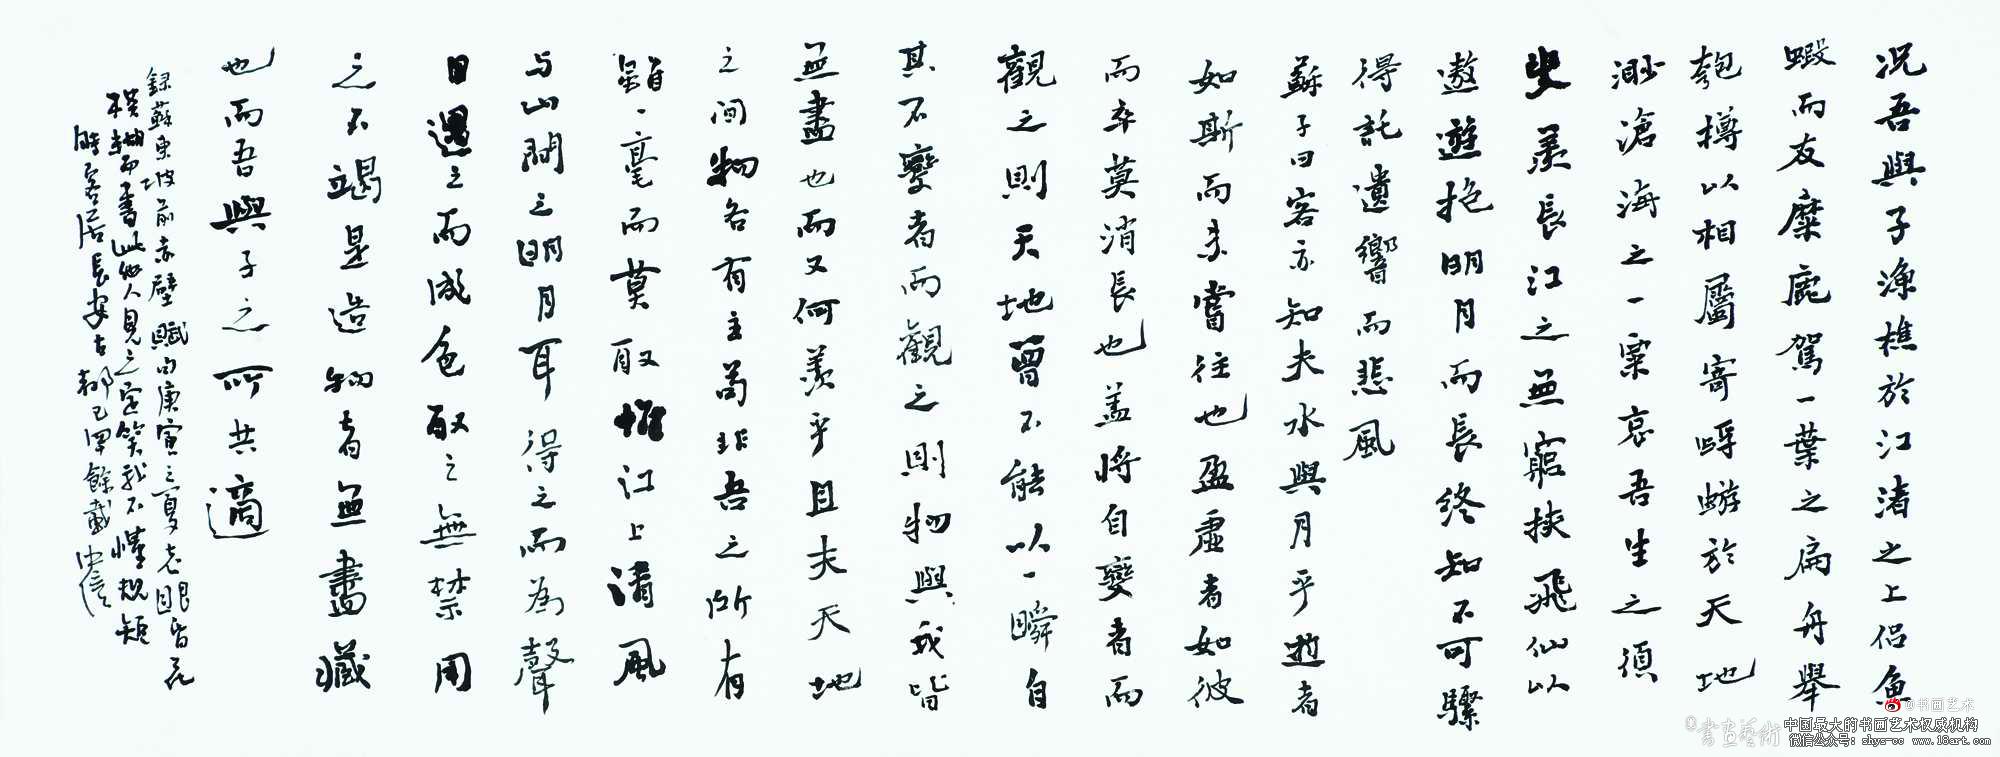 况吾與子漁樵於江渚之上侣魚
蝦而友麋鹿駕一葉之扁舟舉
匏樽以相屬寄蜉蝣於天地
渺滄海之一粟哀吾生之須
臾羨長江之無窮挾飛仙以
遨遊抱明月而長終知不可驟
得託遺響而悲風
蘇子曰客亦知夫水與月乎逝者
如斯而未嘗往也盈虛者如彼
而卒莫消長也盖將自變者而
觀之則天地曾不能以一瞬自
其不變者而觀之則物與我皆
無盡也而又何羨乎且夫天地
之间物各有主苟非吾之所有
雖一毫而莫取惟江上清風
与山間之明月耳得之而為聲
目遇之而成色取之無禁用
之不竭是造物者無盡藏
也而吾與子之所共適
録蘇東坡前赤壁賦句庚寅之夏老眼昏花
模糊而書此他人見之定笑我不懂規矩
時客居長安古都已四餘載
@书画艺术
書画藝術
中国最大的书画艺术权威机构
微信公众号：shys-cc www.18art.com